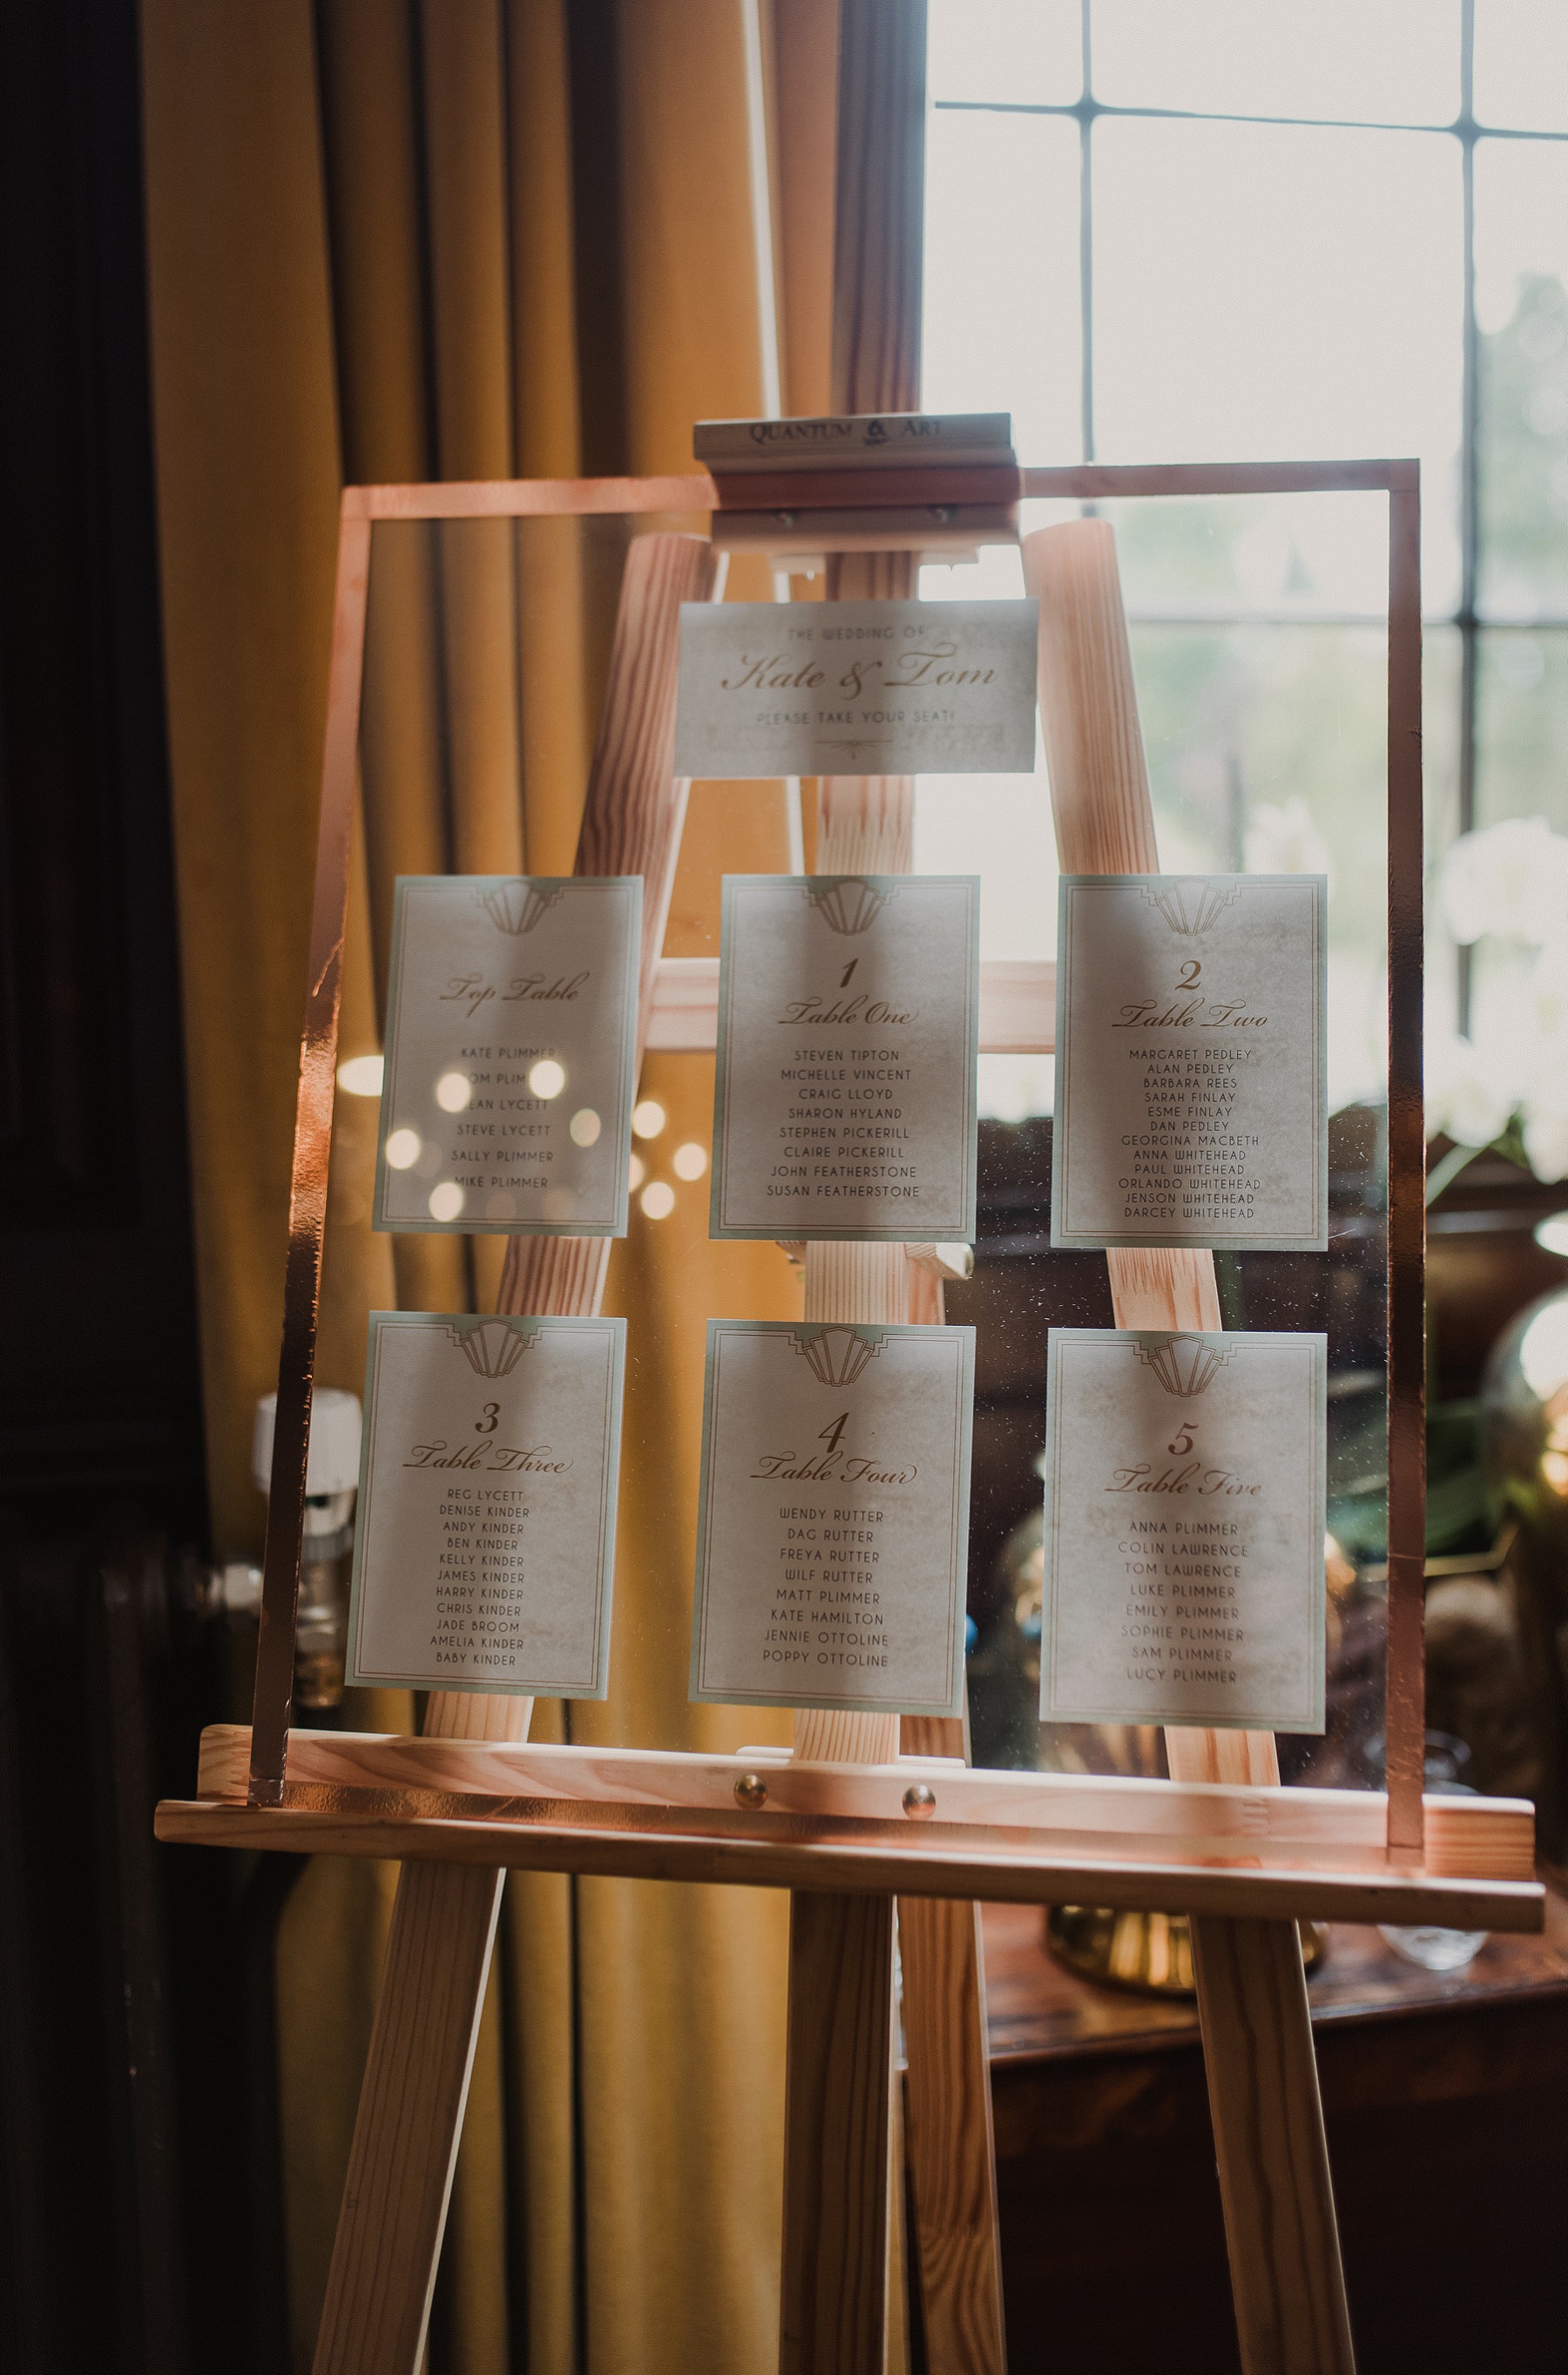 QUANTUM & ART
THE WEDDING OF
Kate & Tom
PLEASE TAKE YOUR SEAT!
Top Table
KATE PLIMMER
TOM PLIMMER
LYCETT
STEVE LYCETT
SALLY PLIMMER
MIKE PLIMMER
1
Table One
STEVEN TIPTON
MICHELLE VINCENT
CRAIG LLOYD
SHARON HYLAND
STEPHEN PICKERILL
CLAIRE PICKERILL
JOHN FEATHERSTONE
SUSAN FEATHERSTONE
2
Table Two
MARGARET PEDLEY
ALAN PEDLEY
BARBARA REES
SARAH FINLAY
ESME FINLAY
DAN PEDLEY
GEORGINA MACBETH
ANNA WHITEHEAD
PAUL WHITEHEAD
ORLANDO WHITEHEAD
JENSON WHITEHEAD
DARCEY WHITEHEAD
3
Table Three
REG LYCETT
DENISE KINDER
ANDY KINDER
BEN KINDER
KELLY KINDER
JAMES KINDER
HARRY KINDER
CHRIS KINDER
JADE BROOM
AMELIA KINDER
BABY KINDER
4
Table Four
WENDY RUTTER
DAG RUTTER
FREYA RUTTER
WILF RUTTER
MATT PLIMMER
KATE HAMILTON
JENNIE OTTOLINE
POPPY OTTOLINE
5
Table Five
ANNA PLIMMER
COLIN LAWRENCE
TOM LAWRENCE
LUKE PLIMMER
EMILY PLIMMER
SOPHIE PLIMMER
SAM PLIMMER
LUCY PLIMMER